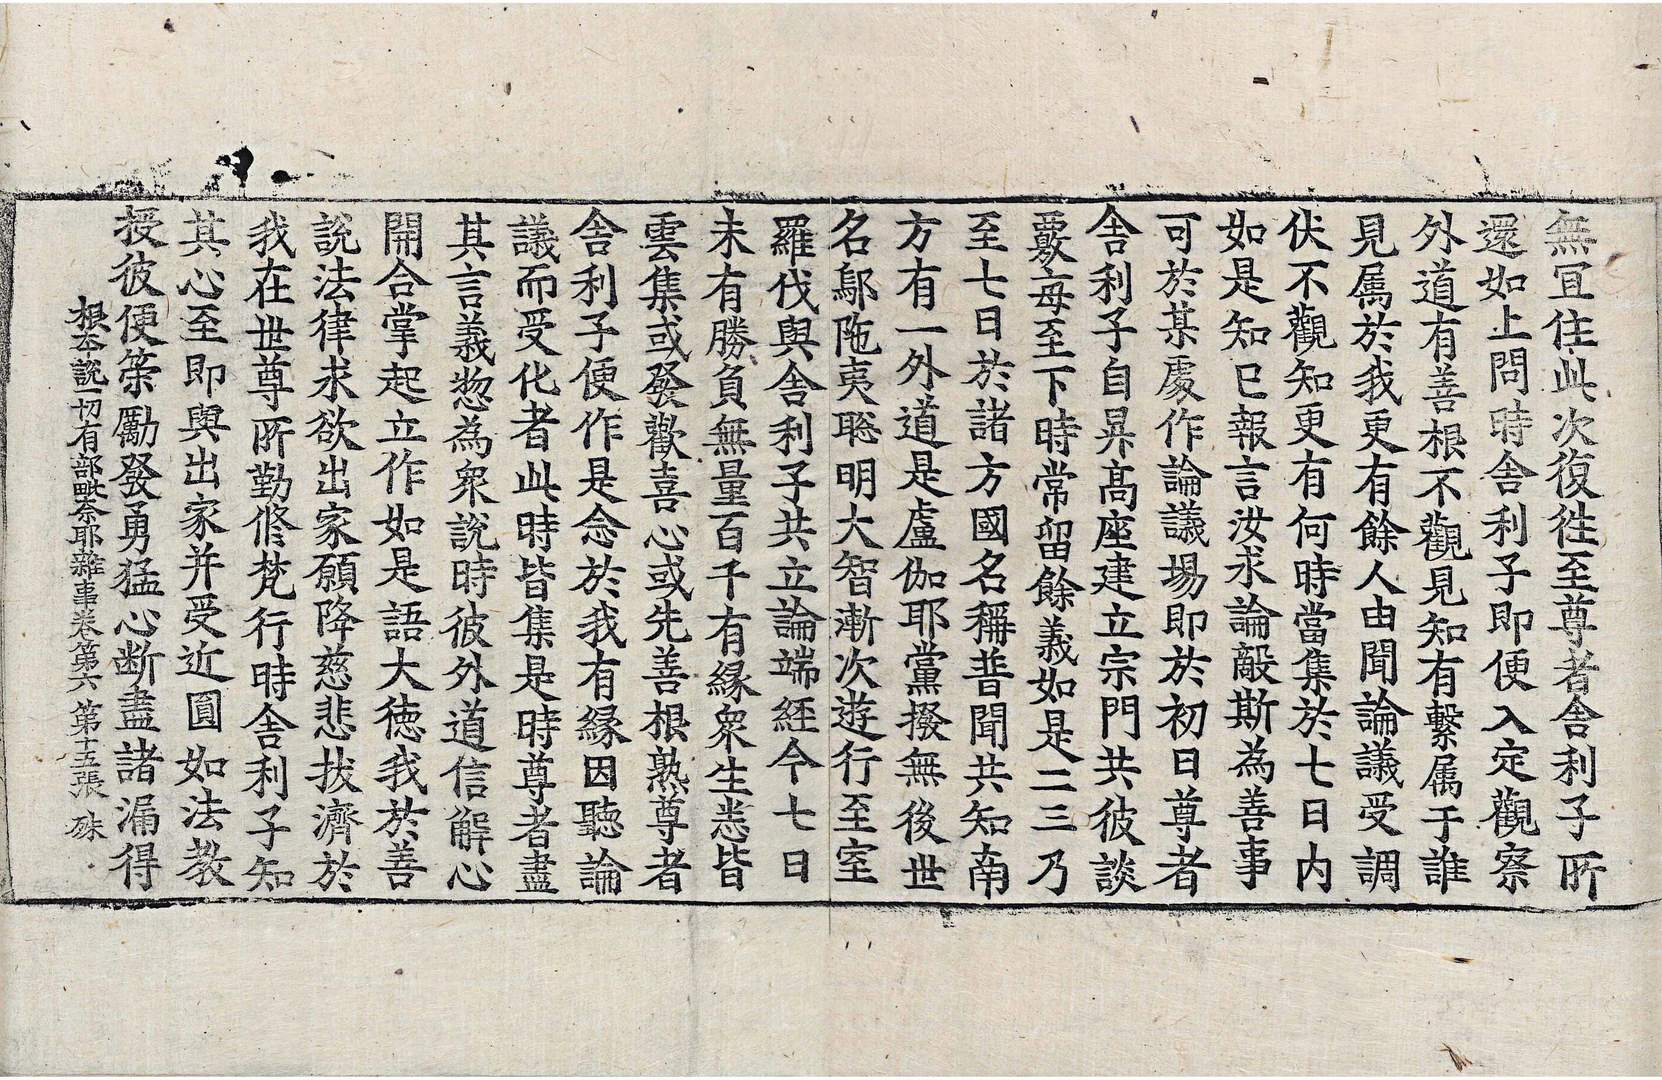 無宜住此次復徃至尊者舍利子所
還如上問時舍利子即便入定觀察
外道有善根不觀見知有繫属于誰
見属於我更有餘人由聞論議受調
伏不觀知更有何時當集於七日内
如是知已報言汝求論敵斯為善事
可於某處作論議場即於初日尊者
舍利子自昇高座建立宗門共彼談
覈每至下時常留餘義如是二三乃
至七日於諸方國名稱普聞共知南
方有一外道是盧伽耶黨撥無後世
名鄔陁夷聡明大智漸次遊行至室
羅伐與舍利子共立論端經今七日
未有勝負無量百千有縁衆生悉皆
雲集或發歡喜心或先善根熟尊者
舎利子便作是念於我有縁因聽論
議而受化者此時皆集是時尊者盡
其言義惣為衆說時彼外道信解心
開合掌起立作如是語大徳我於善
說法律求欲出家願降慈悲拔濟於
我在世尊所勤修梵行時舎利子知
其心至即與出家并受近圓如法教
授彼便策勵發勇猛心断盡諸漏得
根本說一切有部毗奈耶雜事卷第六 第十五張 殊